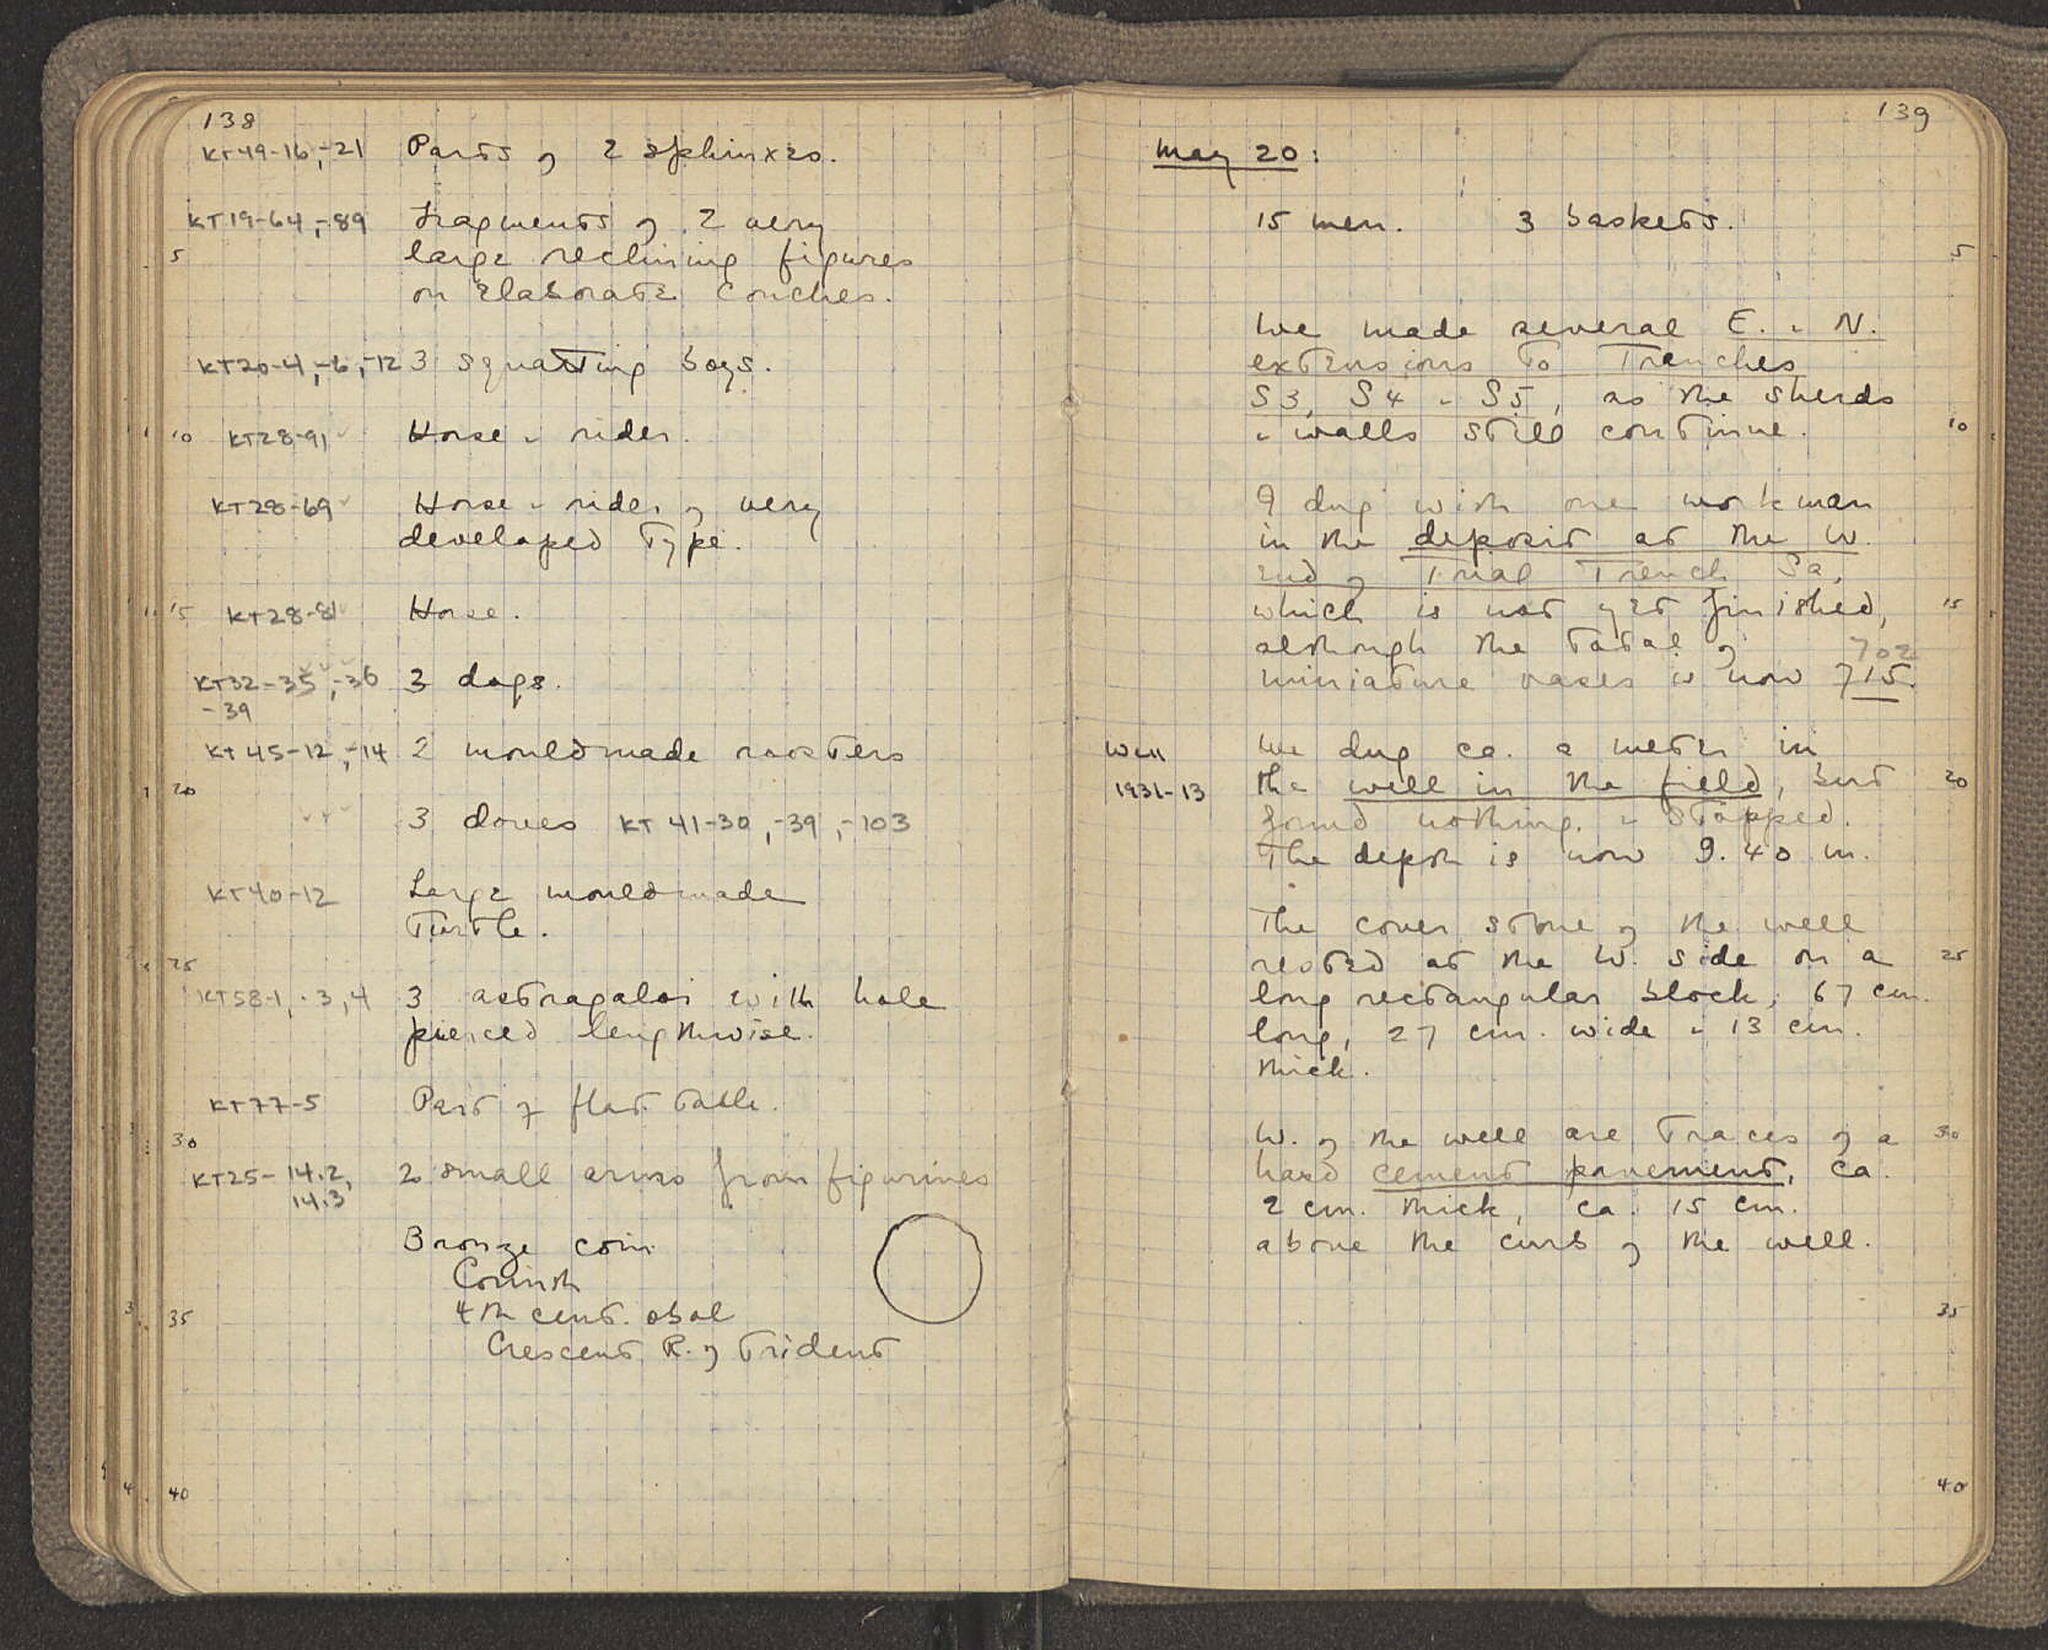 138
KT49-16,-21 Parts of 2 sphinxes.
KT19-64,-89 Fragments of 2 very
5 large reclining figures
on elaborate couches.
KT20-4,-6,-12 3 squatting boys.
10 KT28-91 Horse & rider.
KT28-69 Horse & rider of very
developed type.
15 KT28-81 Horse.
KT32-35,-36 3 dogs.
-39
KT45-12,-14 2 mouldmade roosters
20
3 doves KT 41-30,-39,-103
KT40-12 Large mouldmade
Turtle.
25
KT58-1,-3,4 3 astragaloi with hole
pierced lengthwise.
KT77-5 Part of flat table.
30
KT25-14.2, 2 small arms from figurines
14.3
Bronze coin
Corinth
4th cent. obol
35
Crescent R. of Trident
40
139
May 20:
15 men. 3 baskets.
5
We made several E. & N.
extensions to Trenches
S3, S4 & S5, as the sherds
& walls still continue. 10
I dug with one workman
in the deposit at the W.
end of Trial Trench Sa,
which is not yet finished, 15
although the total of 702
miniature vases is now 715.
Well We dug ca. a meter in
1931-13 the well in the field, but 20
found nothing & stopped.
The depth is now 9.40 m.
The cover stone of the well
rested at the W. side on a 25
long rectangular block, 67 cm.
long, 27 cm. wide & 13 cm.
thick.
W. of the well are traces of a 30
hard cement pavement, ca.
2 cm. thick, ca. 15 cm.
above the curb of the well.
35
40